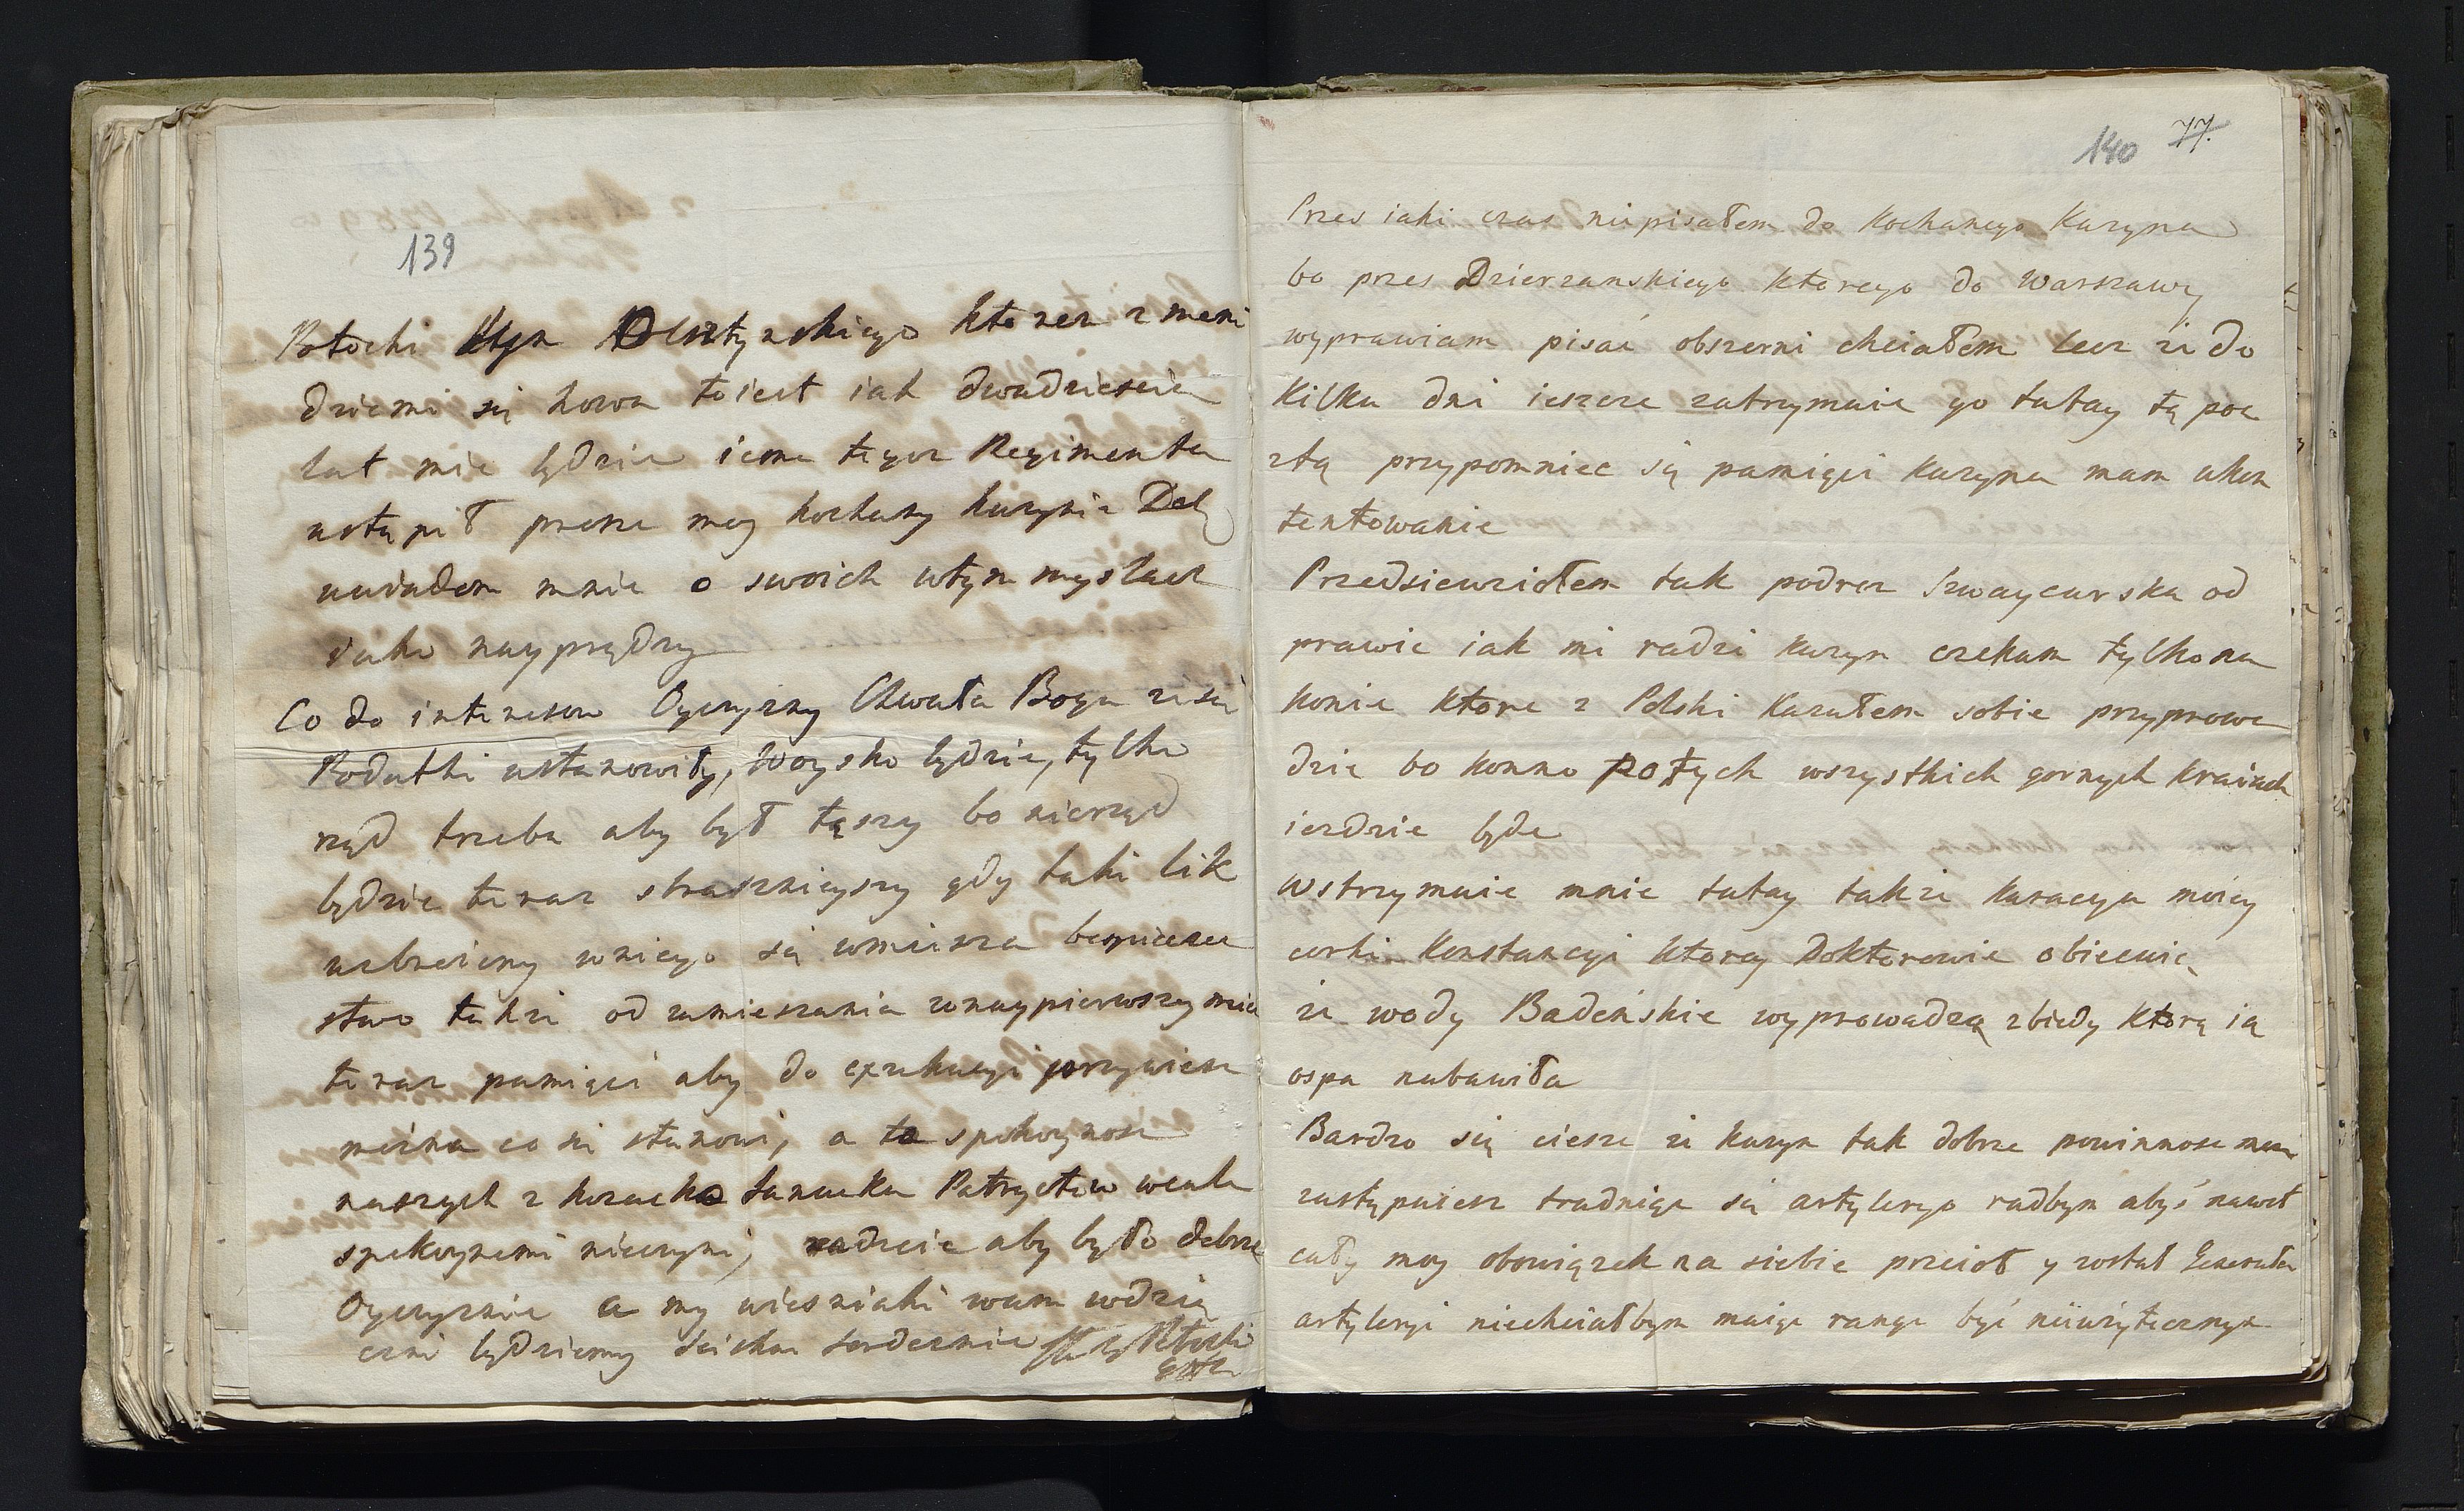 139
Potocki Syn Olsztynskiego ktoren z memi
dziecmi się howa toiest iak dwadziescia
lat mie będzie iemu tegoz Regimentu
ustąpił prosze moy kochany kuzynie Daly
uwiadom mnie o swoich wtym myslach
iako nayprędzy
Co do interesow Oyczyzny Chwała Bogu ze się
Podatki ustanowiły, Woysko będzie, tylko
rząd trzeba aby był tęszy bo nierząd
będzie teraz strasznieyszy gdy taki lik
uzbroiony wniego się wmiesza bespiecze
stwo takze od zamieszania wnaypierwszy mieć
teraz pamięci aby do exekucyi przywiesc
można co się stanowi, a ta spokoynosc
naszych z kozacka Patryotow wcale
spokoynemi nieczyni, radzcie aby było dobrze
Oyczyznie a my wiesniaki wam wdzię
czni będziemy sciskam serdecznie St Potocki
140 77.
Przes iaki czas niepisałem do kochanego Kuzyna
bo przes Dzierzanskiego ktorego do Warszawy
wyprawiam pisać obszerni chciałem lecz ze do
kilku dni ieszcze zatrzymuie go tutay tą poc
ztą przypomniec są pamięci kuzyna mam ukon
tentowanie
Przedsiewziołem tak podroz Szwaycarska od
prawic iak mi radzi kuzyn czekam tylko na
konie ktore z Polski kazałem sobie przyprowa
dzic bo konno potych wszystkich gornych kraiach
iezdzic będe
Wstrzymuie mnie tutay takze kuracya moiey
corki Konstancyi ktorey Doktorowie obiecuią
ze wody Badeńskie wyprowadzą zbiedy ktorą ią
ospa nabawiła
Bardzo się ciesze ze kuzyn tak dobrze powinnosc mo
zastępuiesz trudniąc się artyleryo radbym abyś nawet
cały moy obowiązek na siebie przeioł y został Generałem
artyleryi niechciałbym maiąc range być nieużytecznym